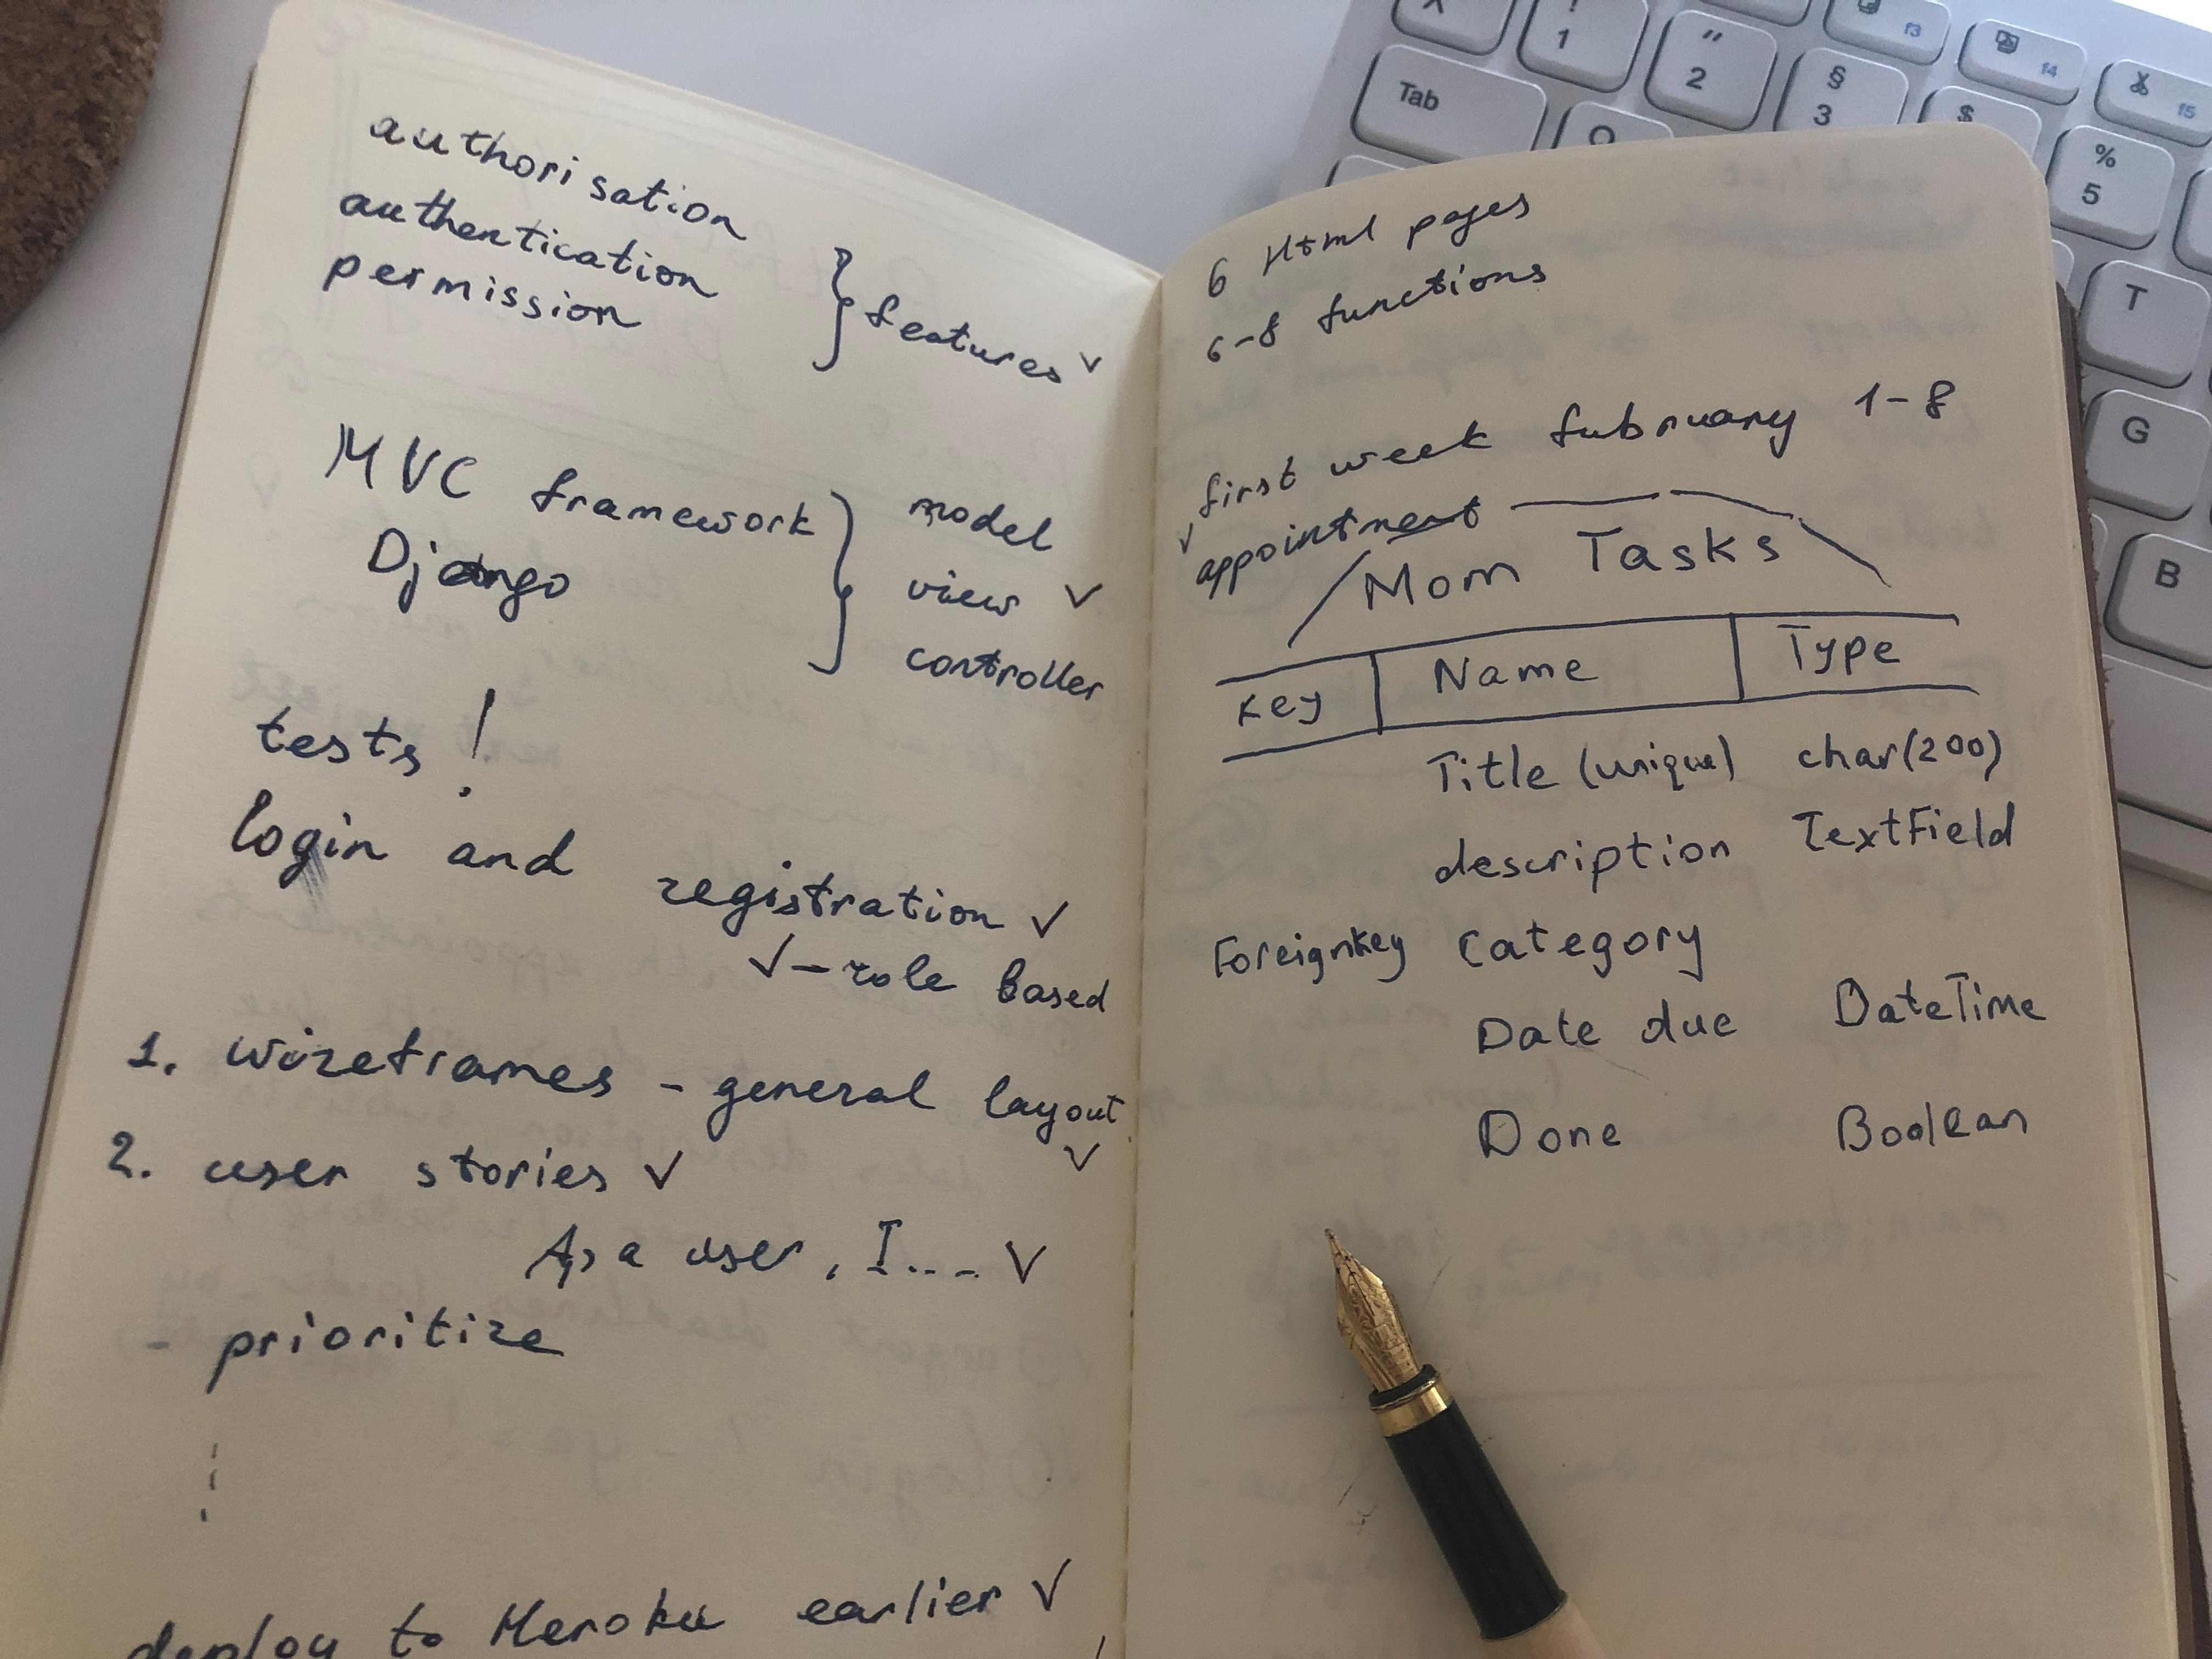 authorisation
authentication
permission
features ✓
MVC framework
Django
model
view ✓
controller
tests !
login and registration ✓
✓ - role based
1. wireframes - general layout ✓
2. user stories ✓
As a user, I... ✓
- prioritize
deploy to Heroku earlier ✓
6 Html pages
6-8 functions
first week fubruary 1-8
✓ appointment
Mom Tasks
Key Name Type
Title (unique) char(200)
description TextField
ForeignKey Category
Date due DateTime
Done Boolean
Tab
1
" 2
§ 3
$
% 5
f3
f4
f5
T
G
B